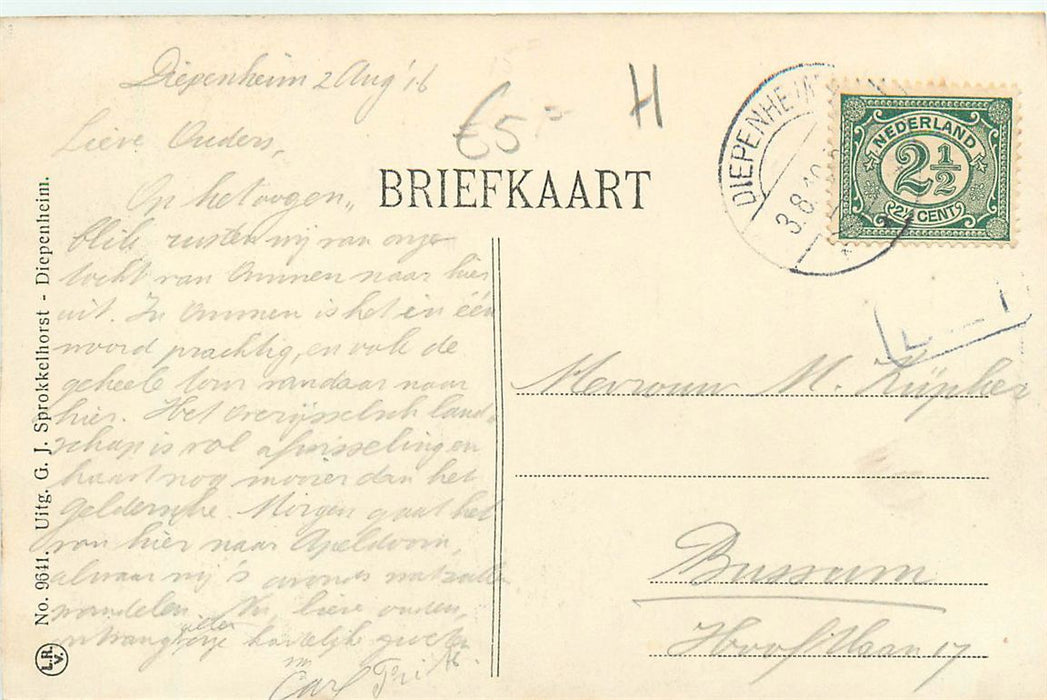 Diepenheim 2 Aug '16
Lieve Ouders,
Op het oogen„
blik rusten wij van onze
tocht van Ommen naar hier
uit. In Ommen is het in één
woord prachtig, en ook de
geheele tour vandaar naar
hier. Het Overijsselsch land-
schap is vol afwisseling en
haast nog mooier dan het
Geldersche. Morgen gaat het
van hier naar Apeldoorn,
alwaar wij 's avonds wat zullen
wandelen. Nu, lieve ouders,
ontvangt hartelijke groeten
Carl Frits.
€5,-
H
BRIEFKAART
DIEPENHEIM
3.8.16
NEDERLAND
2½
2½ CENT
Mevrouw M. Küpfer
Bussum
Hooftlaan 17
No. 9641. Uitg. G. J. Sprokkelhorst - Diepenheim.
L.R.V.